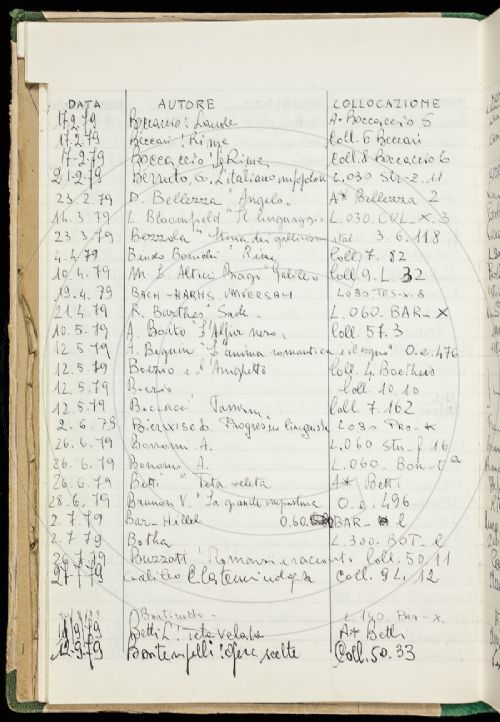 DATA AUTORE COLLOCAZIONE
17.2.79 Boccaccio: Laude A. Boccaccio 5
17.2.79 Beccari: Rime Coll. 6 Beccari
17.2.79 Boccaccio: Rime Coll. 8 Boccaccio 6
21.2.79 Berruto, G. L'italiano L.030 Str-2..11
23.2.79 D. Bellezza "Angelo" A* Bellezza 2
14.3.79 L. Bloomfield "Il linguaggio L.030.CUL-X.3
23.3.79 Bezzola "Storia del 3.6.118
4.4.79 Bindo Bonichi "Rime Coll 7. 82
10.4.79 M. L. Altieri Biagi "Galileo Coll 9.L.32
19.4.79 BACH-HARMS. UNIVERSALI L030.TES-x.8
21.4.79 R. Barthes "Sade. L.060.BAR-X
10.5.79 A. Boito "L'Alfier nero, Coll 57.3
12.5.79 A. Beguin "L'anima romantica e il sogno" O.e.476
12.5.79 Boezio e l' Coll. 4. Boethius
12.5.79 Coll. 10.10
12.5.79 Coll 7.162
2.6.79 Bierwisch. Progressi linguist L080 PRO-X
26.6.79 Bonomi A. L.060 Stu-f 16
26.6.79 Bonomi A. L.060-Bon-
26.6.79 Betti "Teta veleta A* Betti
28.6.79 Brunori V. "La grande impostura O.e.496
2.7.79 Bar-Hillel 0.60. BAR- l
2.7.79 Botha L.300.BOT-l
26.7.79 Buzzati "Romanzi e racconti Coll. 50.11
27.7.79 Galileo e la terminologia Coll. 94.12
Bertinetto- L.140.Ber-x.
18/9/79 Betti L: Teta veleta A* Betti
12.9.79 Bontempelli: Opere scelte Coll. 50.33